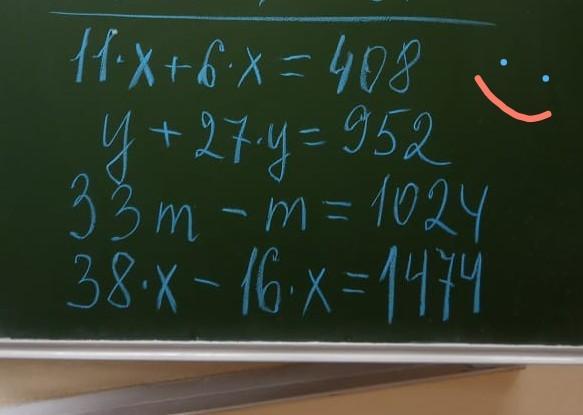 11·x+6·x=408
y+27·y=952
33m-m=1024
38·x-16·x=1474